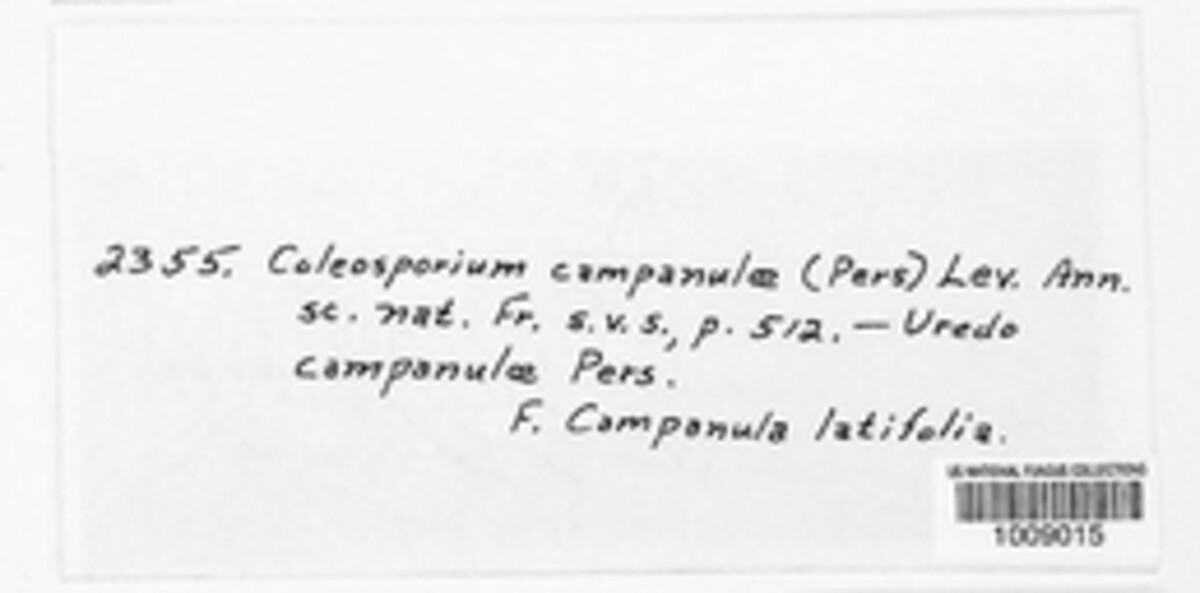 2355. Coleosporium campanulæ (Pers) Lev. Ann.
sc. nat. Fr. s.v.s., p. 512. — Uredo
campanulæ Pers.
F. Campanula latifolia.
US NATIONAL FUNGUS COLLECTIONS
1009015